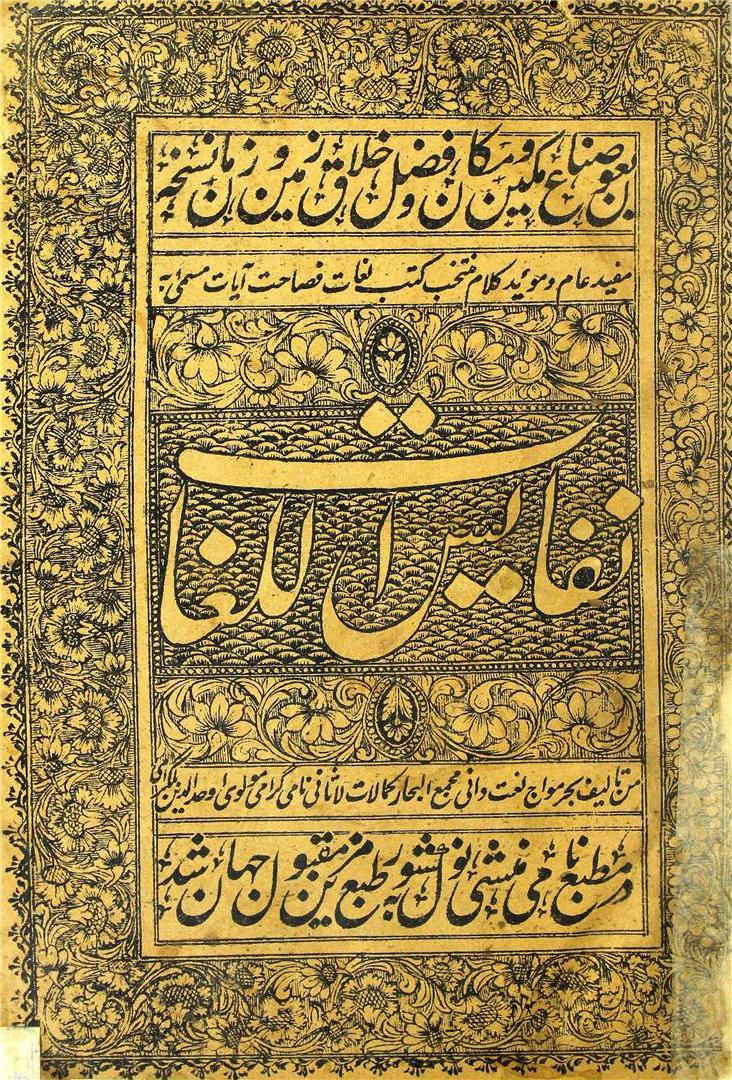 بعون صناع مکین و مکان و فضل خلاق زمین و زمان نسخہ
مفید عام و موئید کلام منتخب کتب لغات فصاحت آیات مسمیٰ بہ
نفایس اللغات
من تالیف بحر مواج لغت دانی مجمع البحار کمالات لاثانی نامی گرامی مولوی اوحد الدین بلگرامی
در مطبع نامی منشی نولکشور بہ طبع مزین مقبول جہان شد